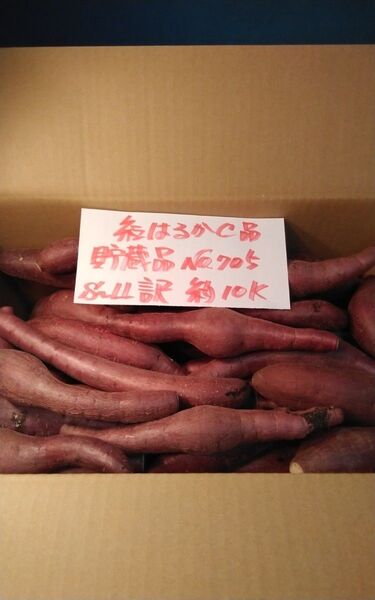 紅はるかC品
貯蔵品No.705
S〜LL訳 約10K